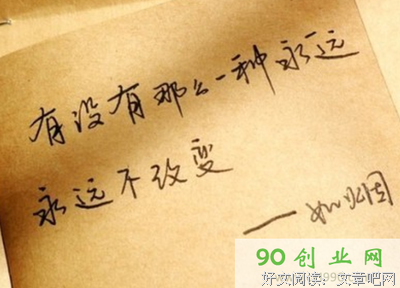 有没有那么一种永远
永远不改变
——如烟
90创业网
好文阅读：文章吧网